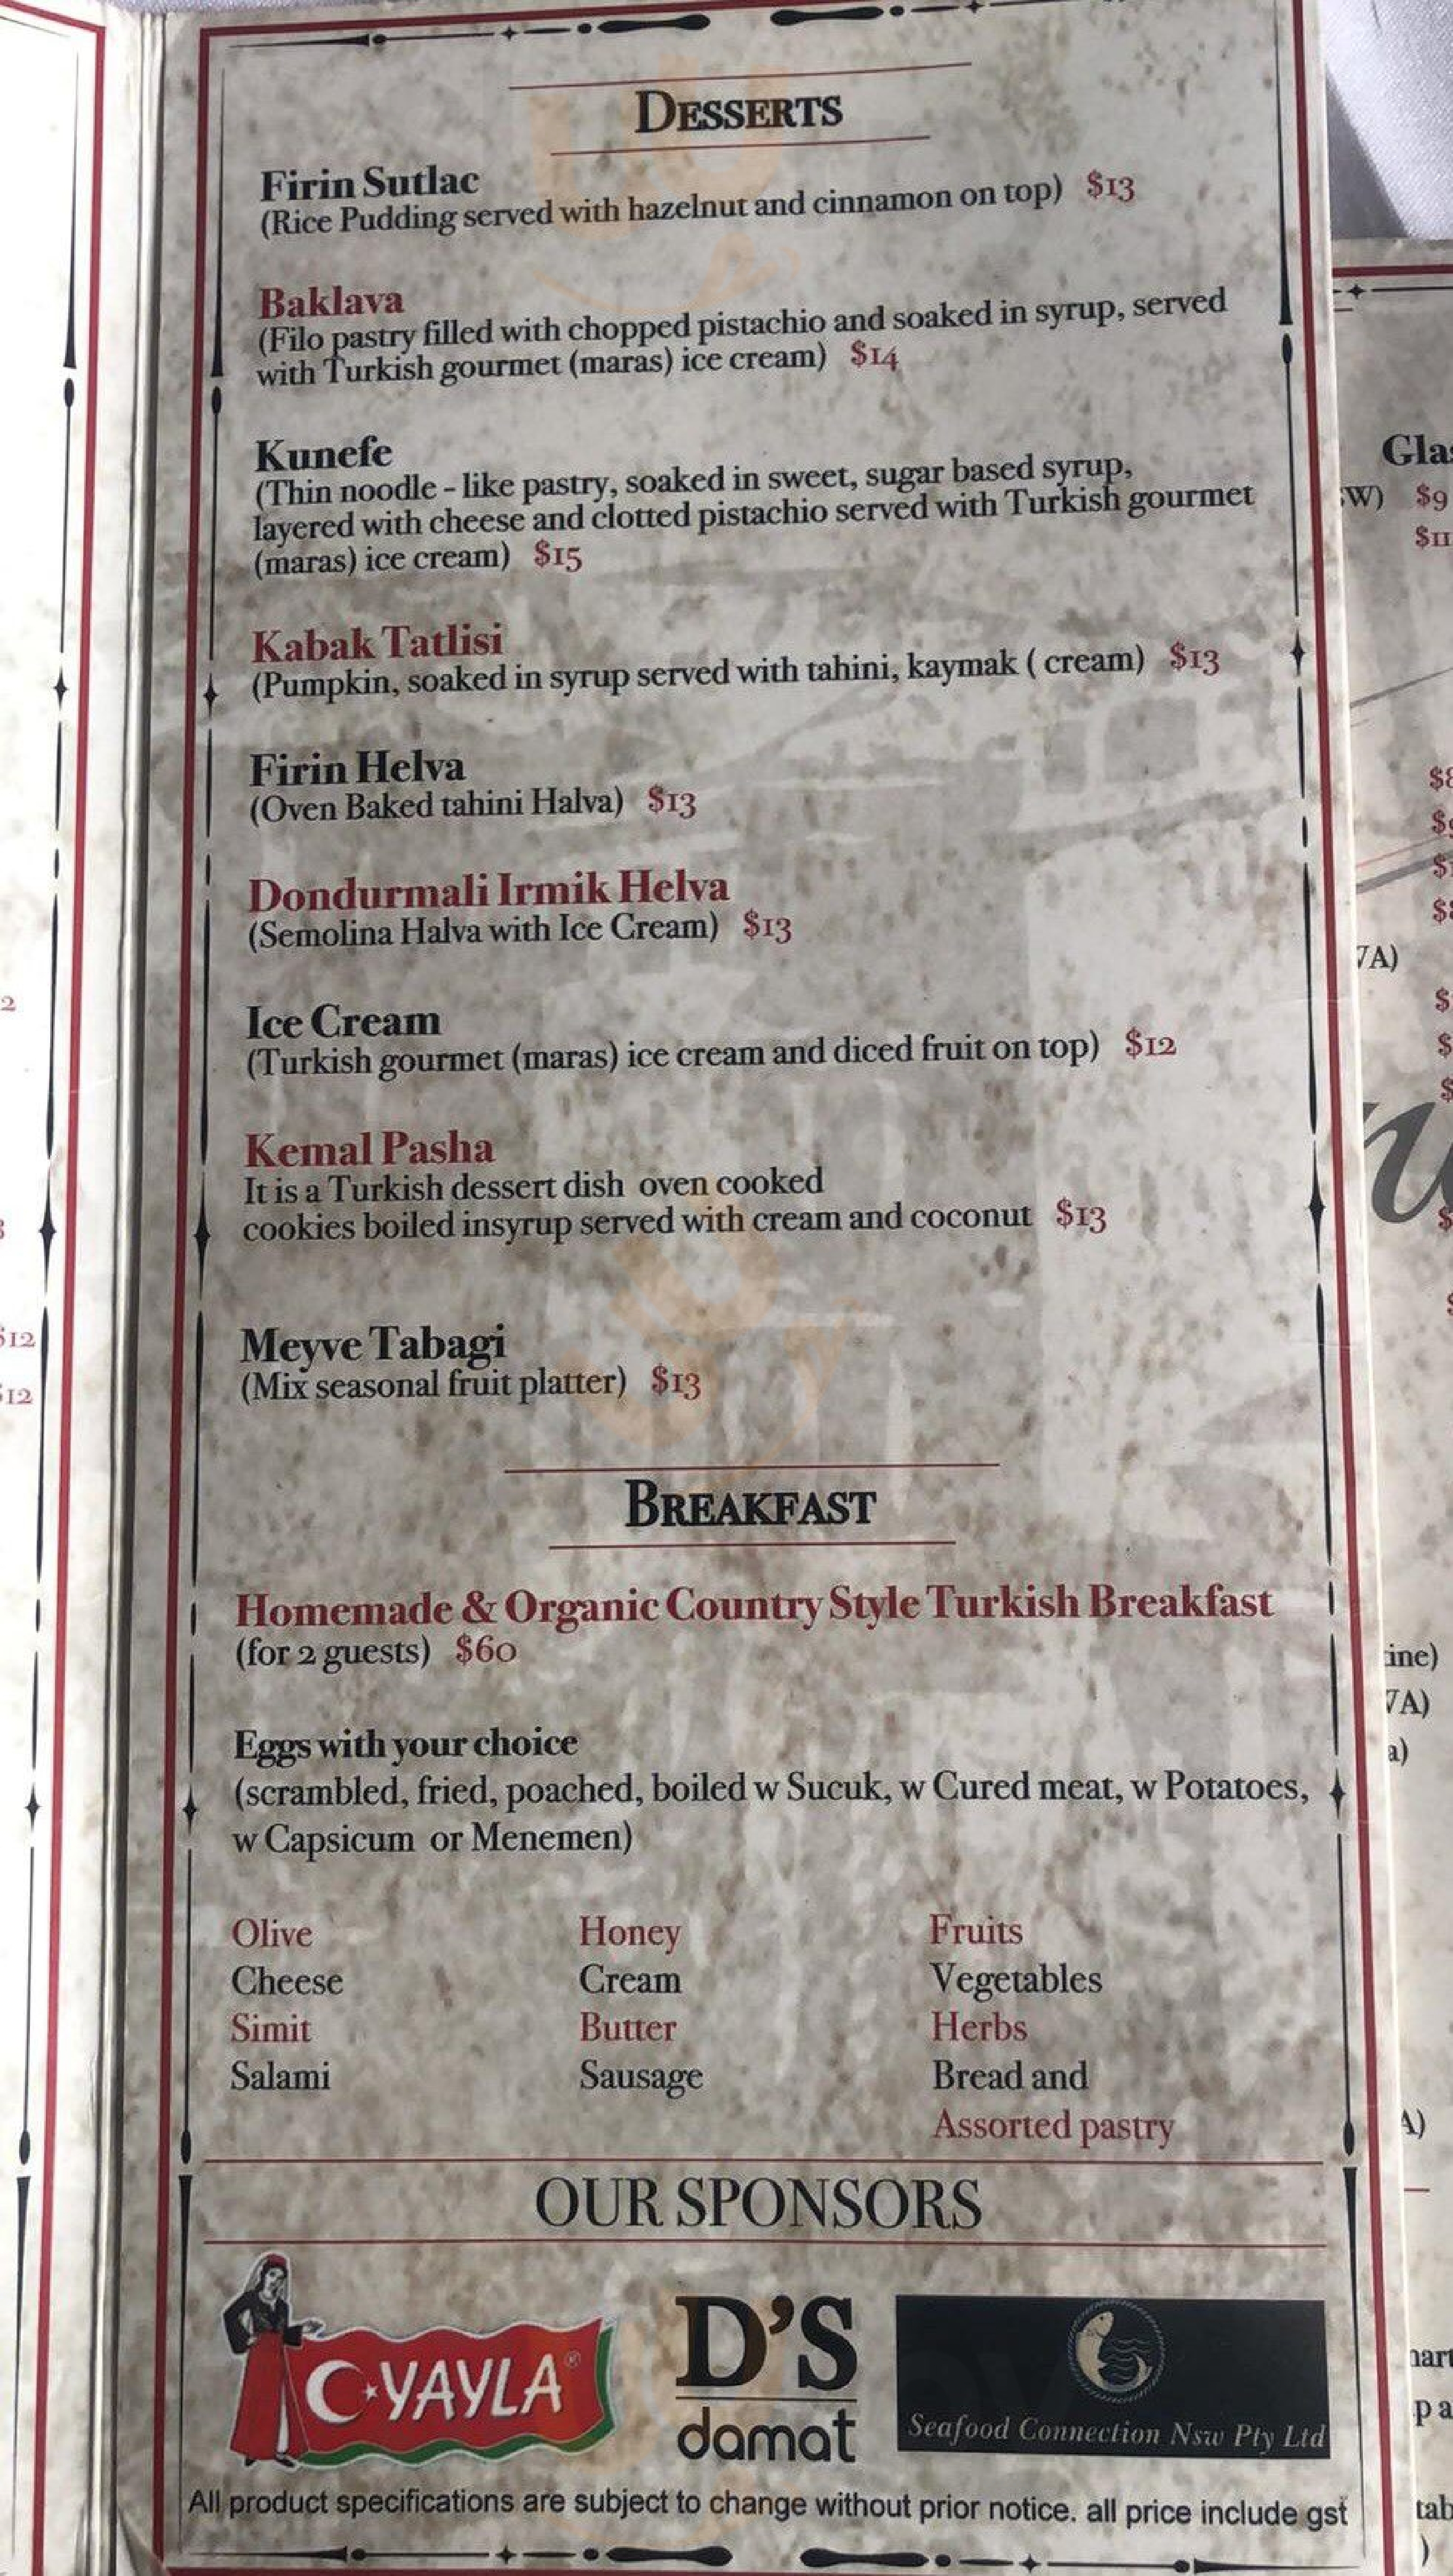 DESSERTS
Firin Sutlac
(Rice Pudding served with hazelnut and cinnamon on top) $13
Baklava
(Filo pastry filled with chopped pistachio and soaked in syrup, served
with Turkish gourmet (maras) ice cream) $14
Kunefe
(Thin noodle - like pastry, soaked in sweet, sugar based syrup,
layered with cheese and clotted pistachio served with Turkish gourmet
(maras) ice cream) $15
Kabak Tatlisi
(Pumpkin, soaked in syrup served with tahini, kaymak ( cream) $13
Firin Helva
(Oven Baked tahini Halva) $13
Dondurmali Irmik Helva
(Semolina Halva with Ice Cream) $13
Ice Cream
(Turkish gourmet (maras) ice cream and diced fruit on top) $12
Kemal Pasha
It is a Turkish dessert dish oven cooked
cookies boiled insyrup served with cream and coconut $13
Meyve Tabagi
(Mix seasonal fruit platter) $13
BREAKFAST
Homemade & Organic Country Style Turkish Breakfast
(for 2 guests) $60
Eggs with your choice
(scrambled, fried, poached, boiled w Sucuk, w Cured meat, w Potatoes,
w Capsicum or Menemen)
Olive Honey Fruits
Cheese Cream Vegetables
Simit Butter Herbs
Salami Sausage Bread and
Assorted pastry
OUR SPONSORS
YAYLA®
D'S
damat
Seafood Connection Nsw Pty Ltd
All product specifications are subject to change without prior notice. all price include gst
$12
$12
$9
$11